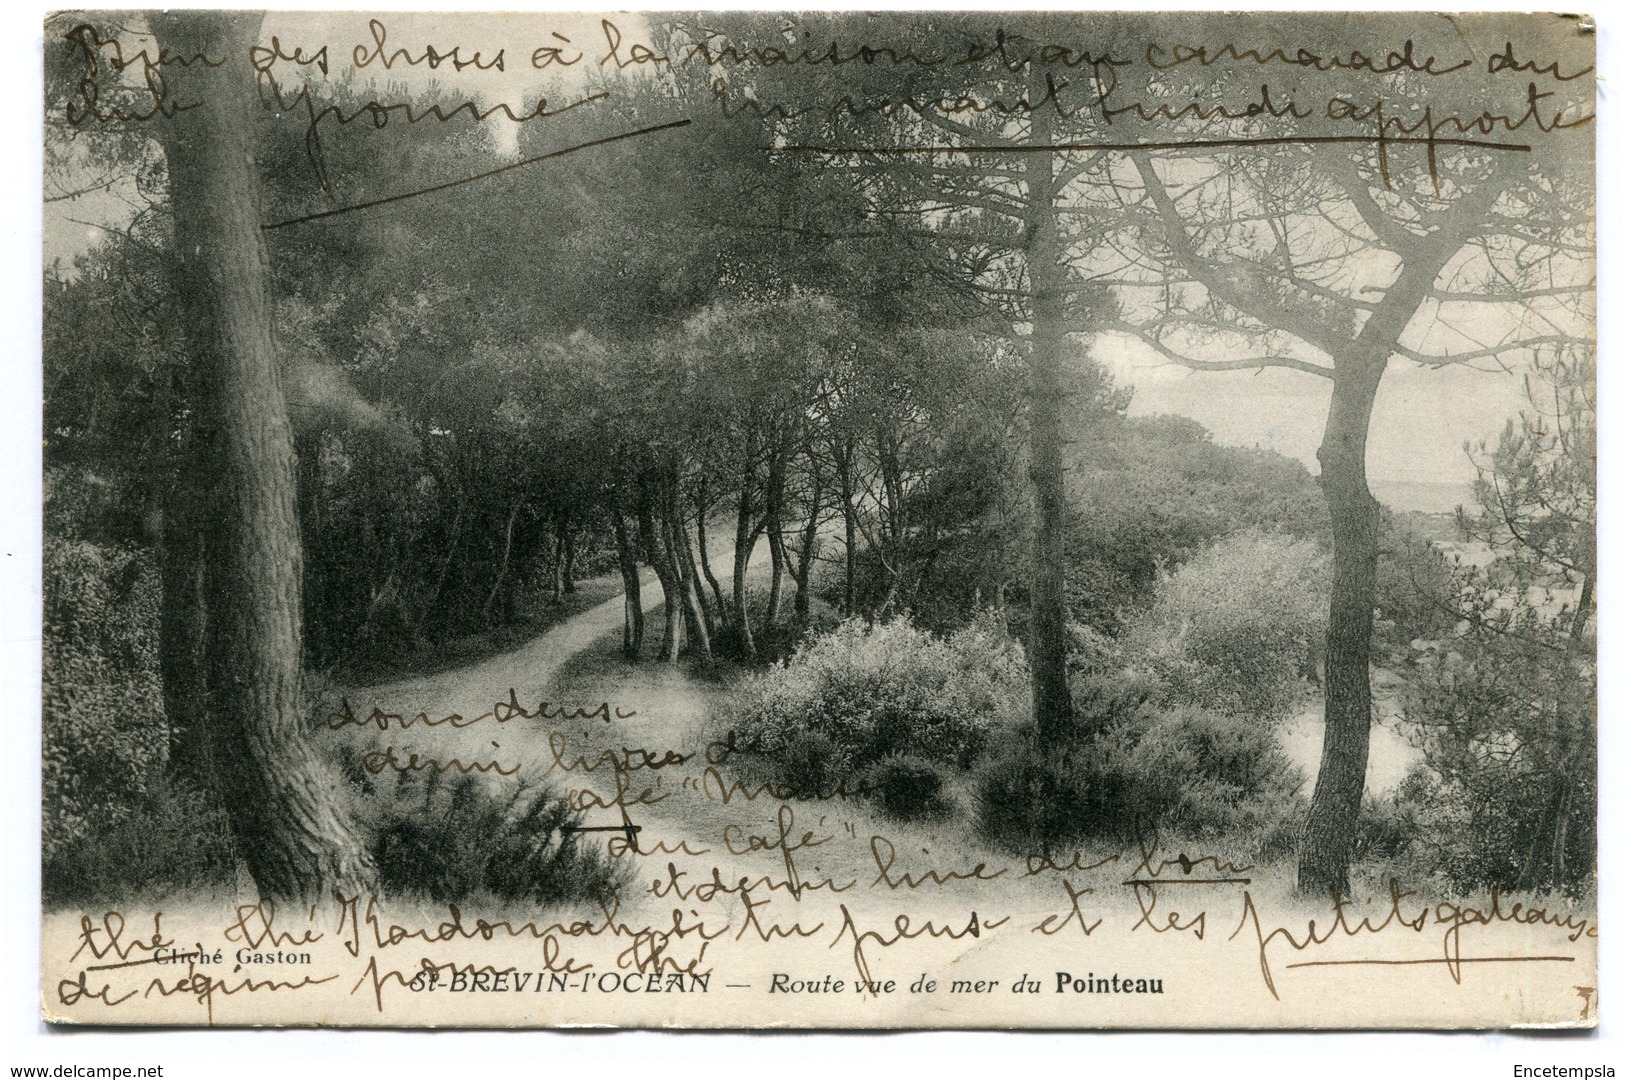 Bien des choses à la maison et au camarade du
club Yvonne En venant lundi apporte
donc deux
demi livres d
café "Mais
du café"
et demi livre de bon
thé thé Kardomah si tu peux et les petits gateaux
de régime pour le thé
Cliché Gaston
St-BREVIN-l'OCÉAN — Route vue de mer du Pointeau
www.delcampe.net
Encetempsla